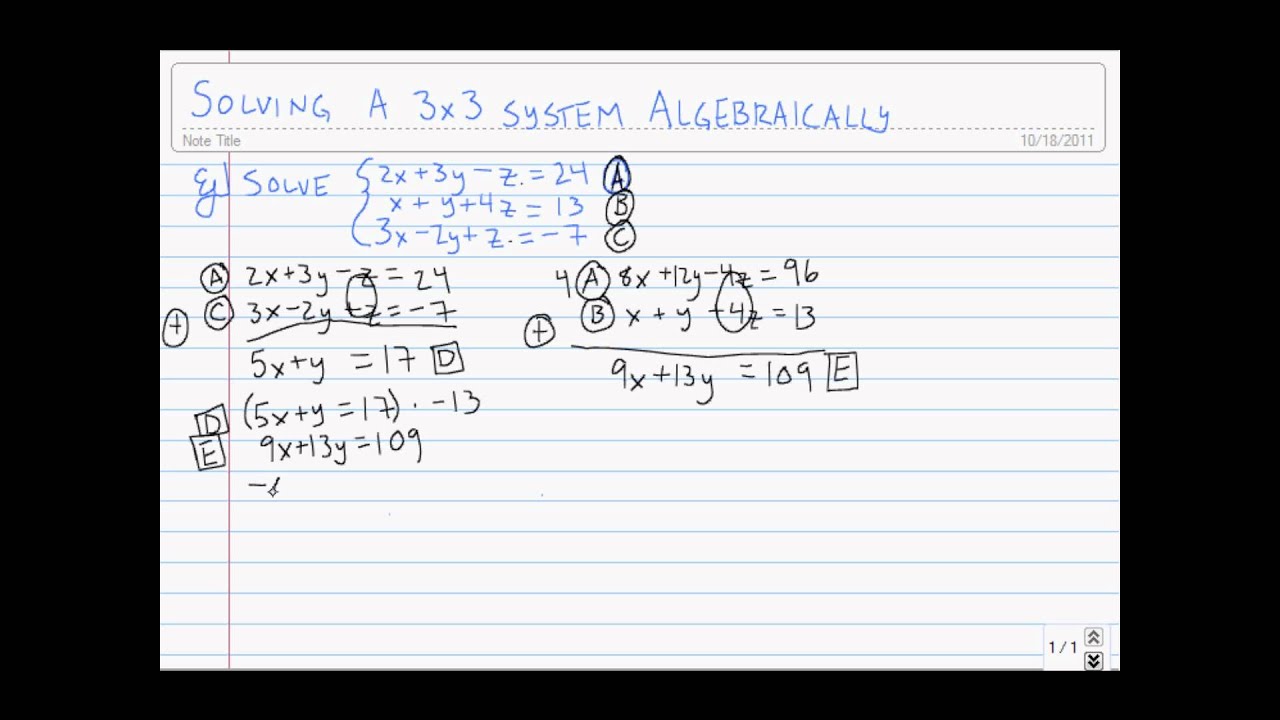 SOLVING A 3x3 SYSTEM ALGEBRAICALLY
Note Title 10/18/2011
Eg SOLVE { 2x+3y-z.=24 Ⓐ
x+y+4z=13 Ⓑ
3x-2y+z.=-7 Ⓒ
Ⓐ 2x+3y-z=24
Ⓒ 3x-2y+z=-7
+
5x+y =17 D
D (5x+y=17)·-13
E 9x+13y=109
4 Ⓐ 8x+12y-4z=96
Ⓑ x+y+4z=13
+
9x+13y =109 E
1/1